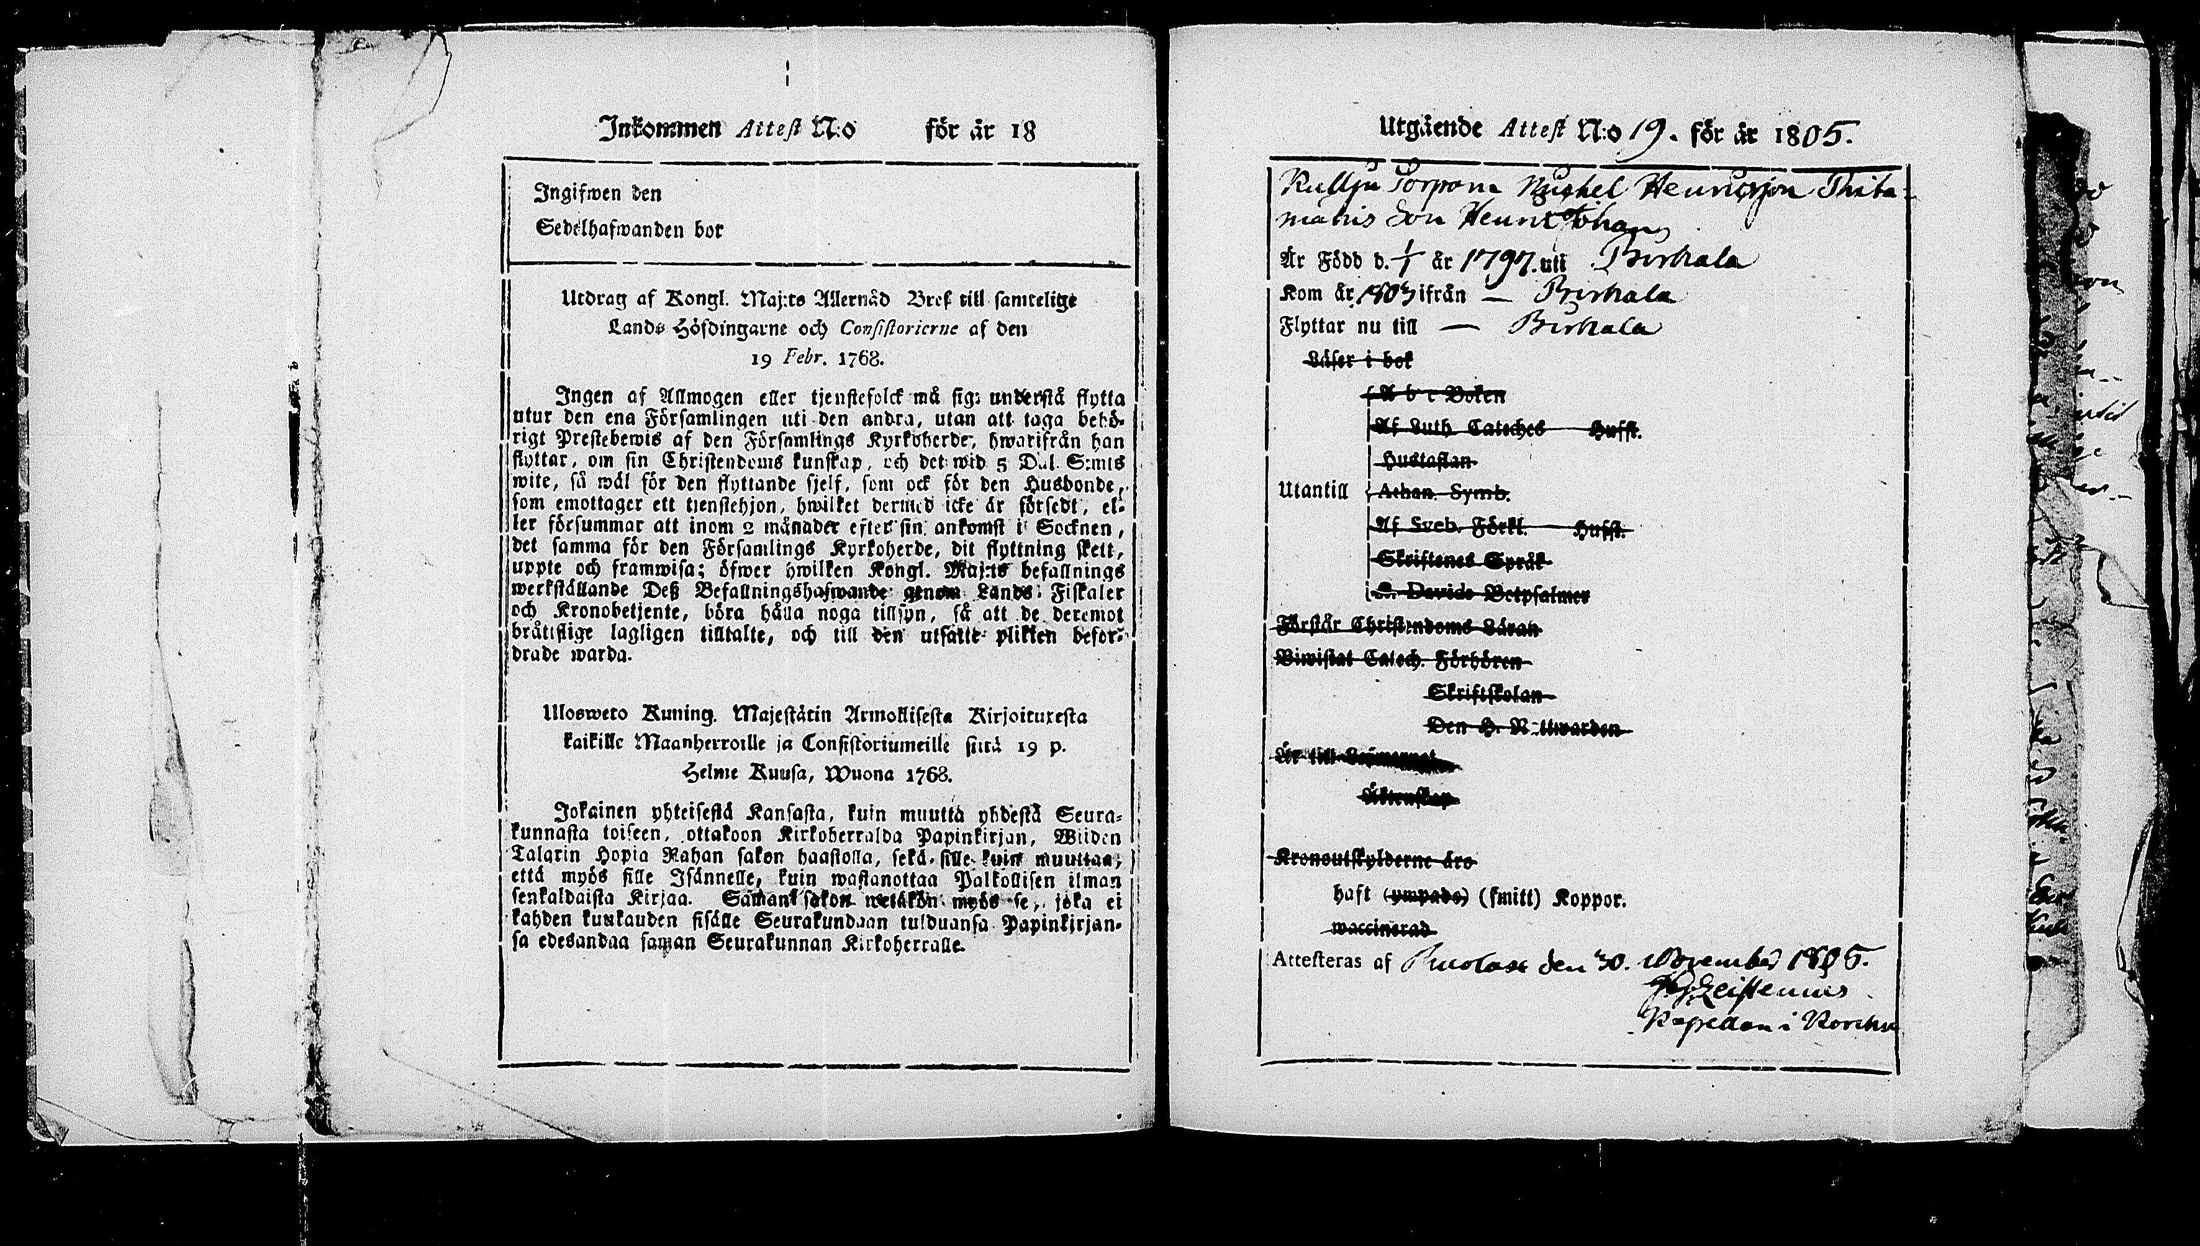 Inkommen Attest N:o för år 18
Ingifwen den
Sedelhafwanden bor
Utdrag af Kongl. Maj:ts Allernåd Bref till samtelige
Lands Höfdingarne och Consistorierne af den
19 Febr. 1768.
Ingen af Allmogen eller tjenstefolck må sig understå flytta
utur den ena Församlingen uti den andra, utan att taga behö-
rigt Prestebewis af den Församlings Kyrkoherde, hwarifrån han
flyttar, om sin Christendoms kunskap, och det wid 5 Dal. S:mts
wite, så wäl för den flyttande sjelf, som ock för den Husbonde,
som emottager ett tienstehjon, hwilket dermed icke är försedt, el-
ler försummar att inom 2 månader efter sin ankomst i Socknen,
det samma för den Församlings Kyrkoherde, dit flyttning skett,
uppte och framwisa; öfwer hwilken Kongl. Maj:ts befallnings
werkställande Deß Befallningshafwande genom Lands Fiskaler
och Kronobetjente, böra hålla noga tillsyn, så att de deremot
bråtislige lagligen tilltalte, och till den utsatte plikten befor-
drade warda.
Ulosweto Kuning. Majestätin Armollisesta Kirjoituxesta
kaikille Maanherroille ja Consistoriumeille siitä 19 p.
Helme Kuusa, Wuona 1768.
Jokainen yhteisestä Kansasta, kuin muutta yhdestä Seura-
kunnasta toiseen, ottakoon Kirkoherralda Papinkirjan, Wiiden
Talarin Hopia Rahan sakon haastolla, sekä sille kuin muuttaa,
että myös sille Isännelle, kuin wastanottaa Palkollisen ilman
senkaldaista Kirjaa. Saman sakon wetäkön myös se, joka ei
kahden kuukauden sisälle Seurakundaan tulduansa Papinkirjan-
sa edesandaa saman Seurakunnan Kirkoherralle.
Utgående Attest N:o 19. för år 1805.
Torpare Michel Henricsson
Son Henric Johan
Är Född d. 1/1 år 1797. uti Birkala
Kom år 1803 ifrån — Birkala
Flyttar nu till — Birkala
Läser i bok
A b c Boken
Af Luth. Cateches Husst.
Hustaflan
Utantill Athan. Symb.
Af Sveb. Förkl. Husst.
Skriftenes Språk
K. Davids Botpsalmer
Förstår Christendoms Läran
Biwistat Catech. Förhören
Skriftskolan
Den H. Nattwarden
Är till
Äktenskap
Kronoutskylderne äro
haft (ympade) (smitt) Koppor.
waccinerad
Attesteras af den 30. November 1805.
i